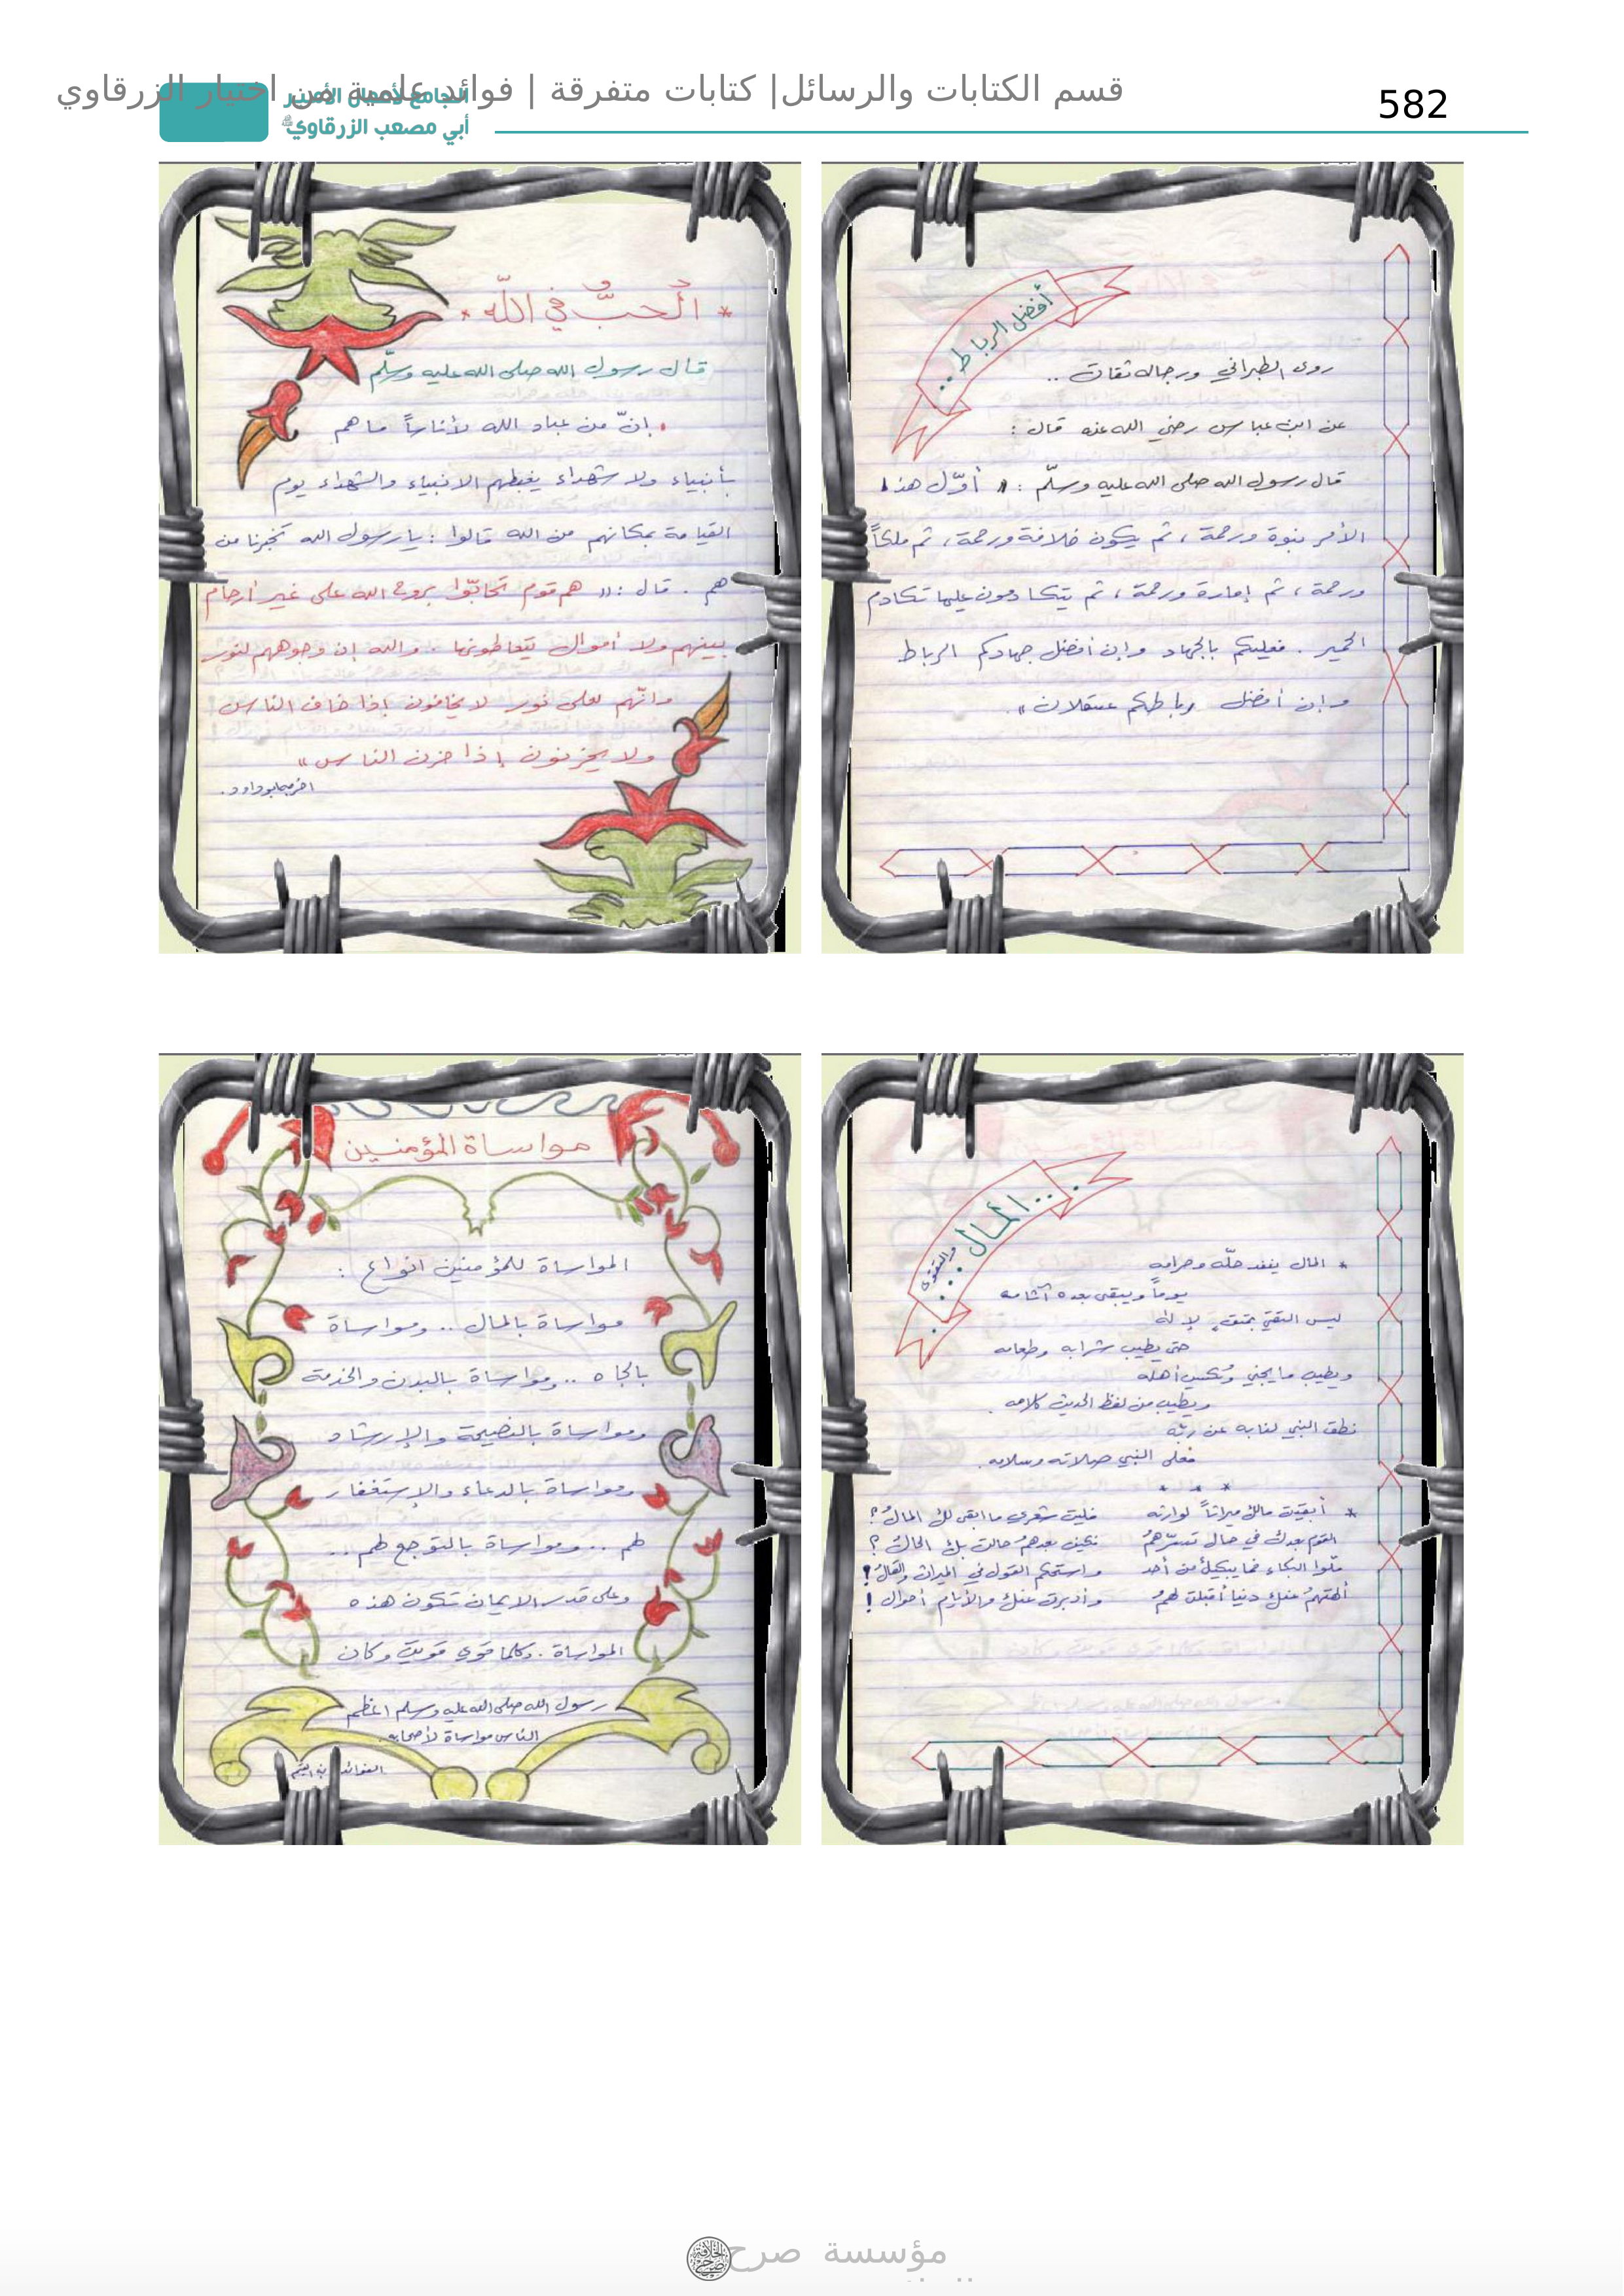 582
قسم الكتابات والرسائل| كتابات متفرقة | فوائد علمية من اختيار الزرقاوي
الجامع لأعمال الأمير
أبي مصعب الزرقاوي
أفضل الرباط ..
روى الطبراني ورجاله ثقات ..
عن ابن عباس رضي الله عنه قال :
قال رسول الله صلى الله عليه وسلّم : « أوّل هذا
الأمر نبوة ورحمة ، ثم يكون خلافة ورحمة ، ثم ملكاً
ورحمة ، ثم إمارة ورحمة ، ثم يتكادمون عليها تكادم
الحمير . فعليكم بالجهاد وإن أفضل جهادكم الرباط
وإن أفضل رباطكم عسقلان » .
* الْحبُّ في اللّه *
قال رسول الله صلى الله عليه وسلّم
. إنّ من عباد الله لأناساً ما هم
بأنبياء ولا شهداء يغبطهم الانبياء والشهداء يوم
القيامة بمكانهم من الله قالوا : يا رسول الله تخبرنا من
هم . قال : « هم قوم تحابّوا بروح الله على غير أرحام
بينهم ولا أموال يتعاطونها . والله إن وجوههم لنور
وانّهم لعلى نور لا يخافون إذا خاف الناس
ولا يحزنون إذا حزن الناس »
اخرجه ابو داود .
المال .. والتقوى
* المال ينفد حلّه وحرامه
يوماً ويبقى بعده آثامه
ليس التقيّ بمتقٍ لإلٰه
حتى يطيب شرابه وطعامه
ويطيب ما يجني ويكسب أهله
ويطيب من لفظ الحديث كلامه .
نطق النبي لنا به عن ربّه
فعلى النبي صلاته وسلامه .
* * *
* أبقيت مالك ميراثاً لوارثه فليت شعري ما ابقى لك المالُ ؟
القوم بعدك في حال تسرّهمُ فكيف بعدهمُ حالت بك الحالُ ؟
ملّوا البكاء فما يبكيكَ من أحد واستحكم القول في الميراث والقالُ !
ألهتهمُ عنكَ دنيا أقبلت لهمُ وأدبرت عنك والأيام أحوال !
مواساة المؤمنين
المواساة للمؤمنين انواع :
مواساة بالمال .. ومواساة
بالجاه .. ومواساة بالبدن والخدمة
ومواساة بالنصيحة والإرشاد
ومواساة بالدعاء والإستغفار
لهم .. ومواساة بالتوجع لهم ..
وعلى قدر الايمان تكون هذه
المواساة . وكلما قوي قويت وكان
رسول الله صلى الله عليه وسلم اعظم
الناس مواساة لأصحابه .
الفوائد ابن القيم
مؤسسة صرح